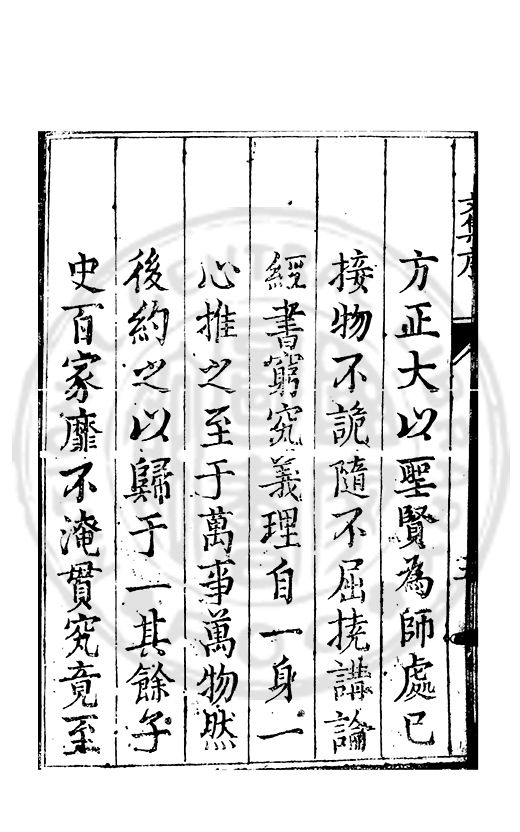 文集序
方正大以聖賢為師處已
接物不詭隨不屈撓講論
經書窮究義理自一身一
心推之至于萬事萬物然
後約之以歸于一其餘子
史百家靡不淹貫究竟至